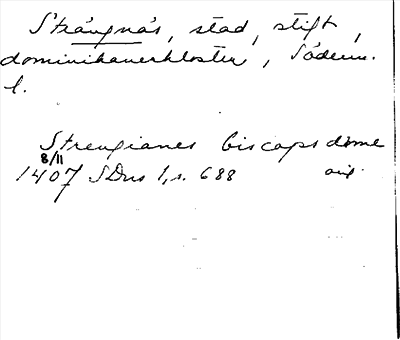 Strängnäs, stad, stift,
dominikanerkloster, Söderm.
l.
Strengianes biscopsdöme
8/11
1407 SDns 1, s. 688 orig.